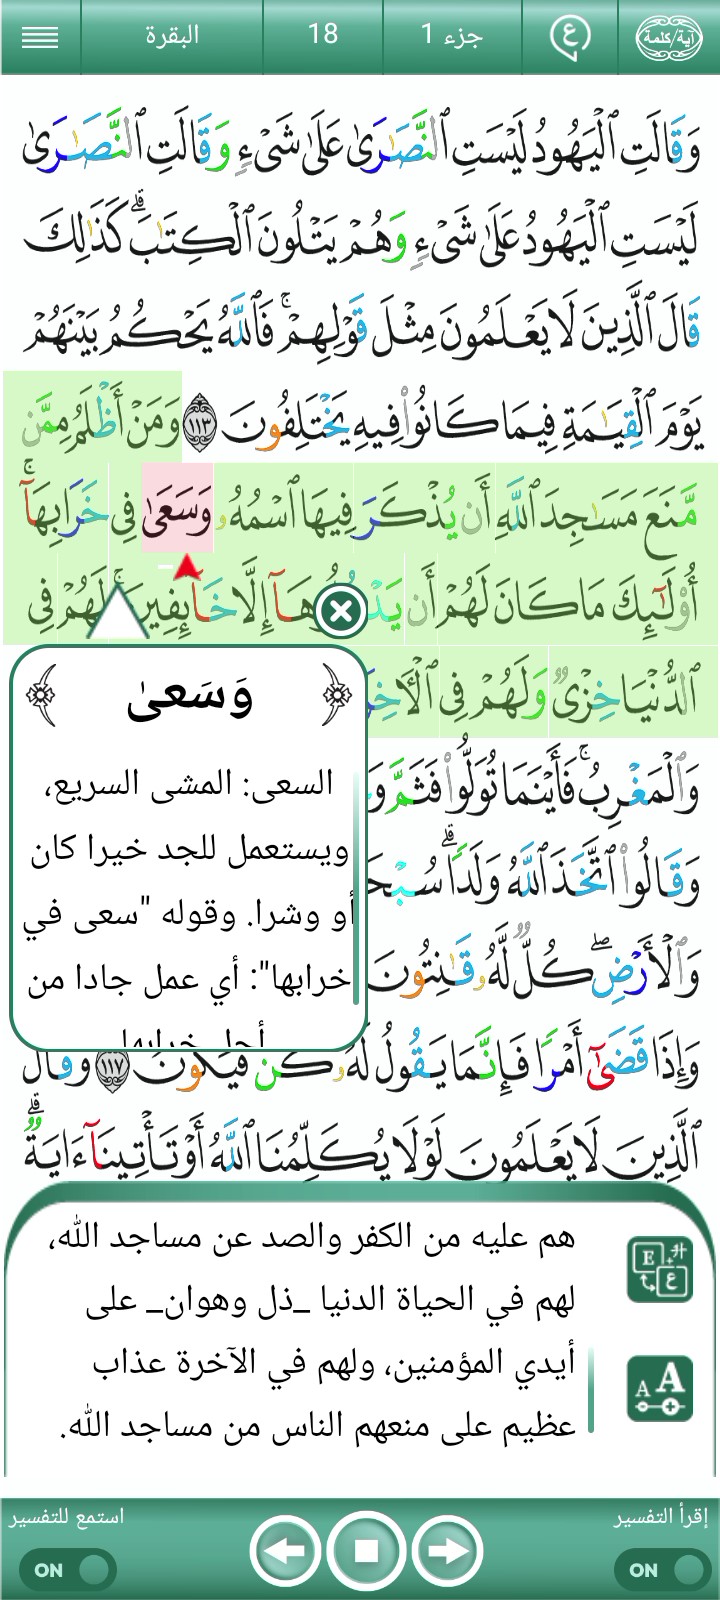 آية/كلمة
ع
جزء 1
18
البقرة
وَقَالَتِ ٱلْيَهُودُ لَيْسَتِ ٱلنَّصَـٰرَىٰ عَلَىٰ شَىْءٍۢ وَقَالَتِ ٱلنَّصَـٰرَىٰ
لَيْسَتِ ٱلْيَهُودُ عَلَىٰ شَىْءٍۢ وَهُمْ يَتْلُونَ ٱلْكِتَـٰبَ ۗ كَذَٰلِكَ
قَالَ ٱلَّذِينَ لَا يَعْلَمُونَ مِثْلَ قَوْلِهِمْ ۚ فَٱللَّهُ يَحْكُمُ بَيْنَهُمْ
يَوْمَ ٱلْقِيَـٰمَةِ فِيمَا كَانُوا۟ فِيهِ يَخْتَلِفُونَ ١١٣ وَمَنْ أَظْلَمُ مِمَّن
مَّنَعَ مَسَـٰجِدَ ٱللَّهِ أَن يُذْكَرَ فِيهَا ٱسْمُهُۥ وَسَعَىٰ فِى خَرَابِهَآ ۚ
أُو۟لَـٰٓئِكَ مَا كَانَ لَهُمْ أَن هَآ إِلَّا خَآئِفِينَ ۚ لَهُمْ فِى
ٱلدُّنْيَا خِزْىٌۭ وَلَهُمْ فِى
وَٱلْمَغْرِبُ ۚ فَأَيْنَمَا تُوَلُّوا۟ فَثَمَّ
وَقَالُوا۟ ٱتَّخَذَ ٱللَّهُ وَلَدًۭا ۗ
وَٱلْأَرْضِ ۖ كُلٌّۭ لَّهُۥ قَـٰنِتُونَ
وَإِذَا قَضَىٰٓ أَمْرًۭا فَإِنَّمَا يَقُولُ لَهُۥ كُن فَيَكُونُ ١١٧ وَقَالَ
ٱلَّذِينَ لَا يَعْلَمُونَ لَوْلَا يُكَلِّمُنَا ٱللَّهُ أَوْ تَأْتِينَآ ءَايَةٌۭ ۗ
وَسَعىٰ
السعى: المشى السريع،
ويستعمل للجد خيرا كان
أو وشرا. وقوله "سعى في
خرابها": أي عمل جادا من
هم عليه من الكفر والصد عن مساجد الله،
لهم في الحياة الدنيا _ذل وهوان_ على
أيدي المؤمنين، ولهم في الآخرة عذاب
عظيم على منعهم الناس من مساجد الله.
E ع
A A
إقرأ التفسير
استمع للتفسير
ON
ON